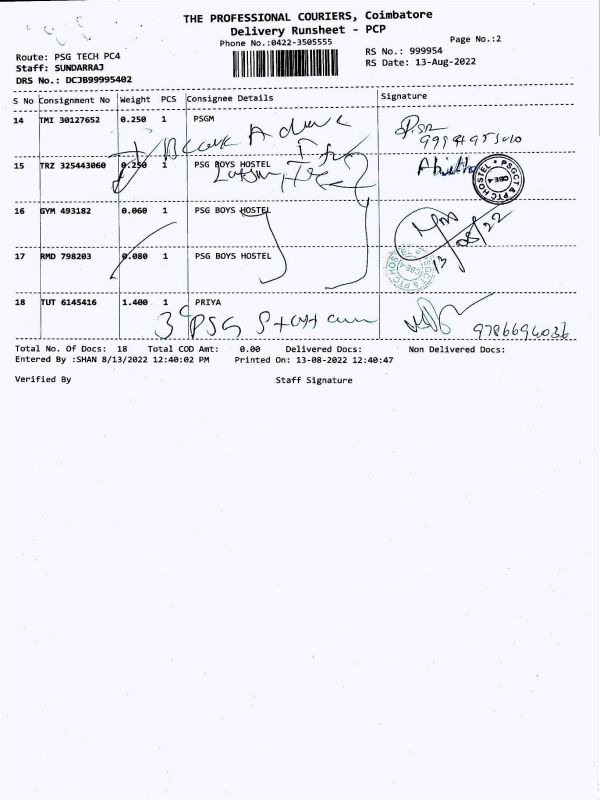 THE PROFESSIONAL COURIERS, Coimbatore
Delivery Runsheet - PCP
Phone No.:0422-3505555
Page No.:2
Route: PSG TECH PC4
Staff: SUNDARRAJ
DRS No.: DCJB99995402
RS No.: 999954
RS Date: 13-Aug-2022
S No Consignment No Weight PCS Consignee Details Signature
14 TMI 30127652 0.250 1 PSGM
15 TRZ 325443060 0.250 1 PSG BOYS HOSTEL
PSGCT & PTC HOSTEL CBE-4
16 GYM 493182 0.060 1 PSG BOYS HOSTEL
13/08/22
17 RMD 798203 0.080 1 PSG BOYS HOSTEL
18 TUT 6145416 1.400 1 PRIYA
PSG
9786694036
Total No. Of Docs: 18 Total COD Amt: 0.00 Delivered Docs: Non Delivered Docs:
Entered By :SHAN 8/13/2022 12:40:02 PM Printed On: 13-08-2022 12:40:47
Verified By Staff Signature